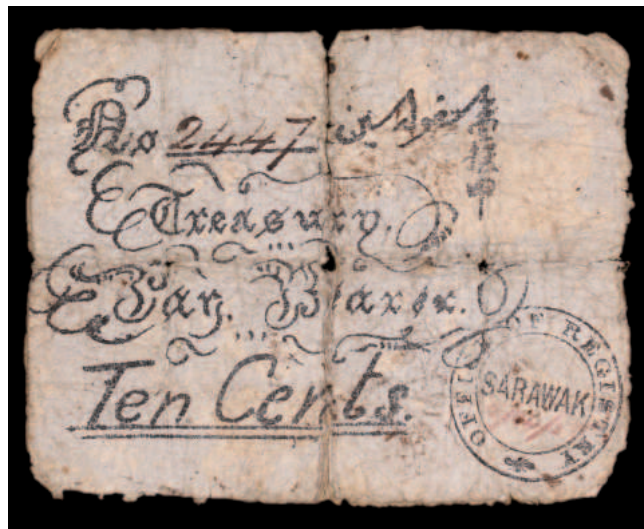 No 2447
Treasury.
Pay. Bearer.
Ten Cents.
OFFICE OF REGISTRY
SARAWAK